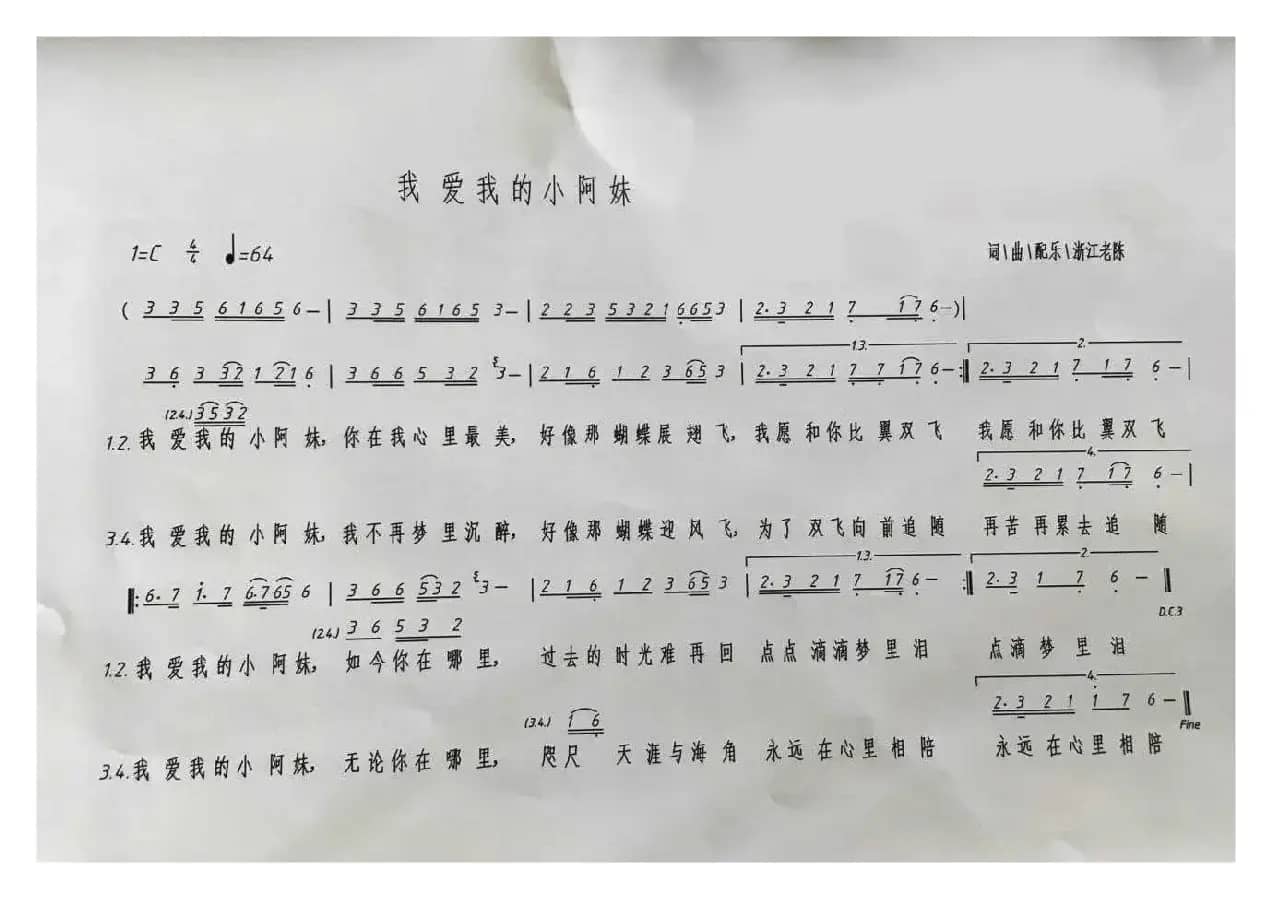 我爱我的小阿妹
1=C 4/4 ♩=64 词\曲\配乐\浙江老陈
( 3 3 5 6 1 6 5 6 — | 3 3 5 6 1 6 5 3 — | 2 2 3 5 3 2 1 6 6 5 3 | 2. 3 2 1 7 1 7 6 — ) |
1.3. 2.
3 6 3 3 2 1 2 1 6 | 3 6 6 5 3 2 5 3 — | 2 1 6 1 2 3 6 5 3 | 2. 3 2 1 7 7 1 7 6 — :‖ 2. 3 2 1 7 1 7 6 — |
(2.4.) 3 5 3 2
1.2. 我爱我的小阿妹, 你在我心里最美, 好像那蝴蝶展翅飞, 我愿和你比翼双飞 我愿和你比翼双飞
4.
2. 3 2 1 7 1 7 6 — |
3.4. 我爱我的小阿妹, 我不再梦里沉醉, 好像那蝴蝶迎风飞, 为了双飞向前追随 再苦再累去追随
1.3. 2.
‖: 6. 7 1. 7 6. 7 6 5 6 | 3 6 6 5 3 2 5 3 — | 2 1 6 1 2 3 6 5 3 | 2. 3 2 1 7 1 7 6 — :‖ 2. 3 1 7 6 — ‖
D.C.3
(2.4.) 3 6 5 3 2
1.2. 我爱我的小阿妹, 如今你在哪里, 过去的时光难再回 点点滴滴梦里泪 点滴梦里泪
4.
2. 3 2 1 1 7 6 — ‖
Fine
(3.4.) 1 6
3.4. 我爱我的小阿妹, 无论你在哪里, 咫尺天涯与海角 永远在心里相陪 永远在心里相陪